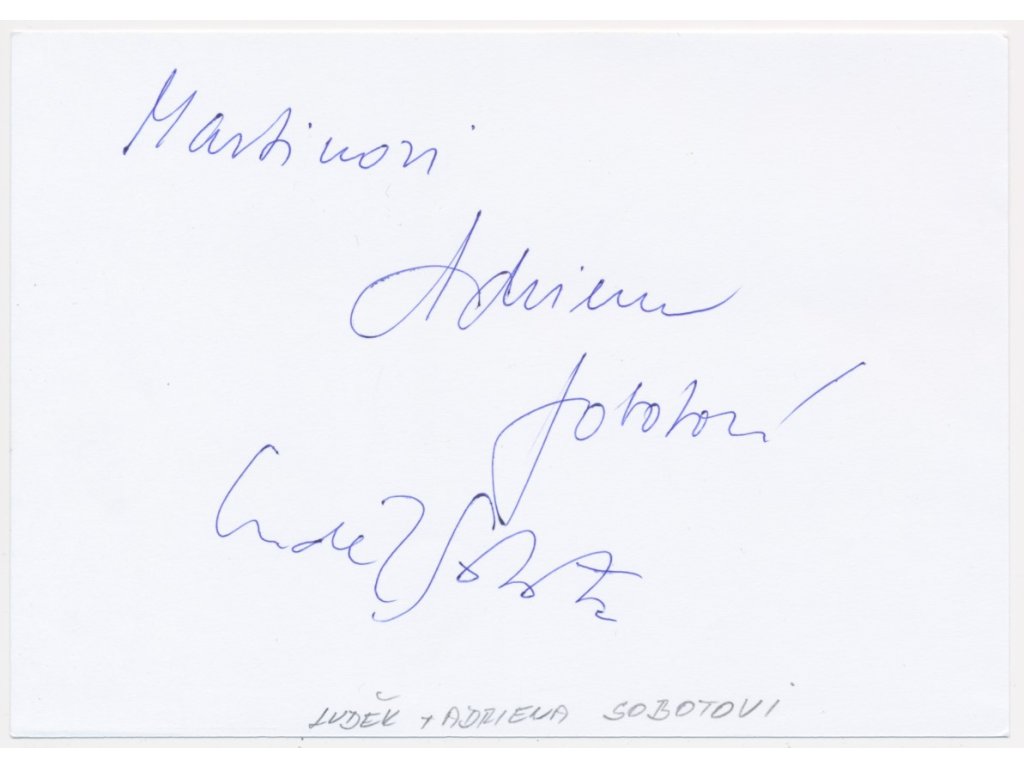 Martinovi
Adriena
Sobotová
Luděk Sobota
LUDĚK + ADRIENA SOBOTOVI